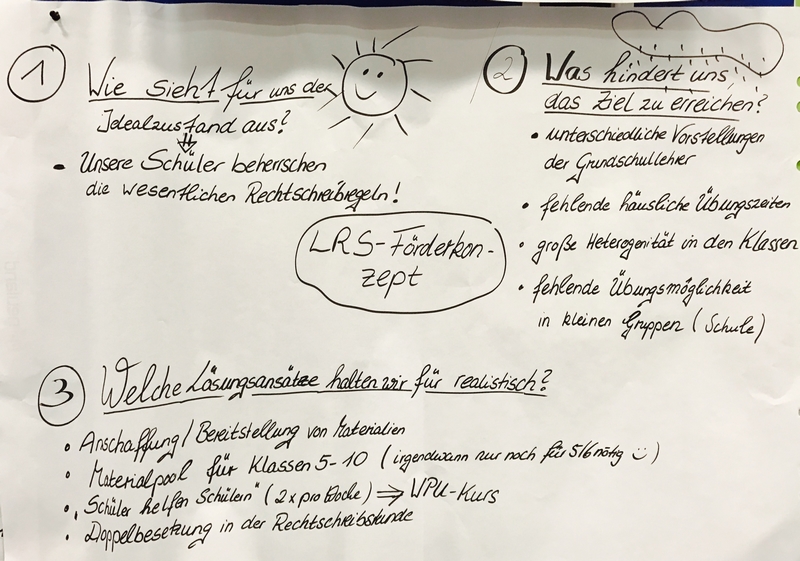 1 Wie sieht für uns der
Idealzustand aus?
⇓
• Unsere Schüler beherrschen
die wesentlichen Rechtschreibregeln!
2 Was hindert uns
das Ziel zu erreichen?
• unterschiedliche Vorstellungen
der Grundschullehrer
• fehlende häusliche Übungszeiten
• große Heterogenität in den Klassen
• fehlende Übungsmöglichkeit
in kleinen Gruppen (Schule)
LRS-Förderkon-
zept
3 Welche Lösungsansätze halten wir für realistisch?
• Anschaffung/Bereitstellung von Materialien
• Materialpool für Klassen 5-10 (irgendwann nur noch für 5/6 nötig ☺)
• "Schüler helfen Schülern" (2x pro Woche) ⇒ WPU-Kurs
• Doppelbesetzung in der Rechtschreibstunde